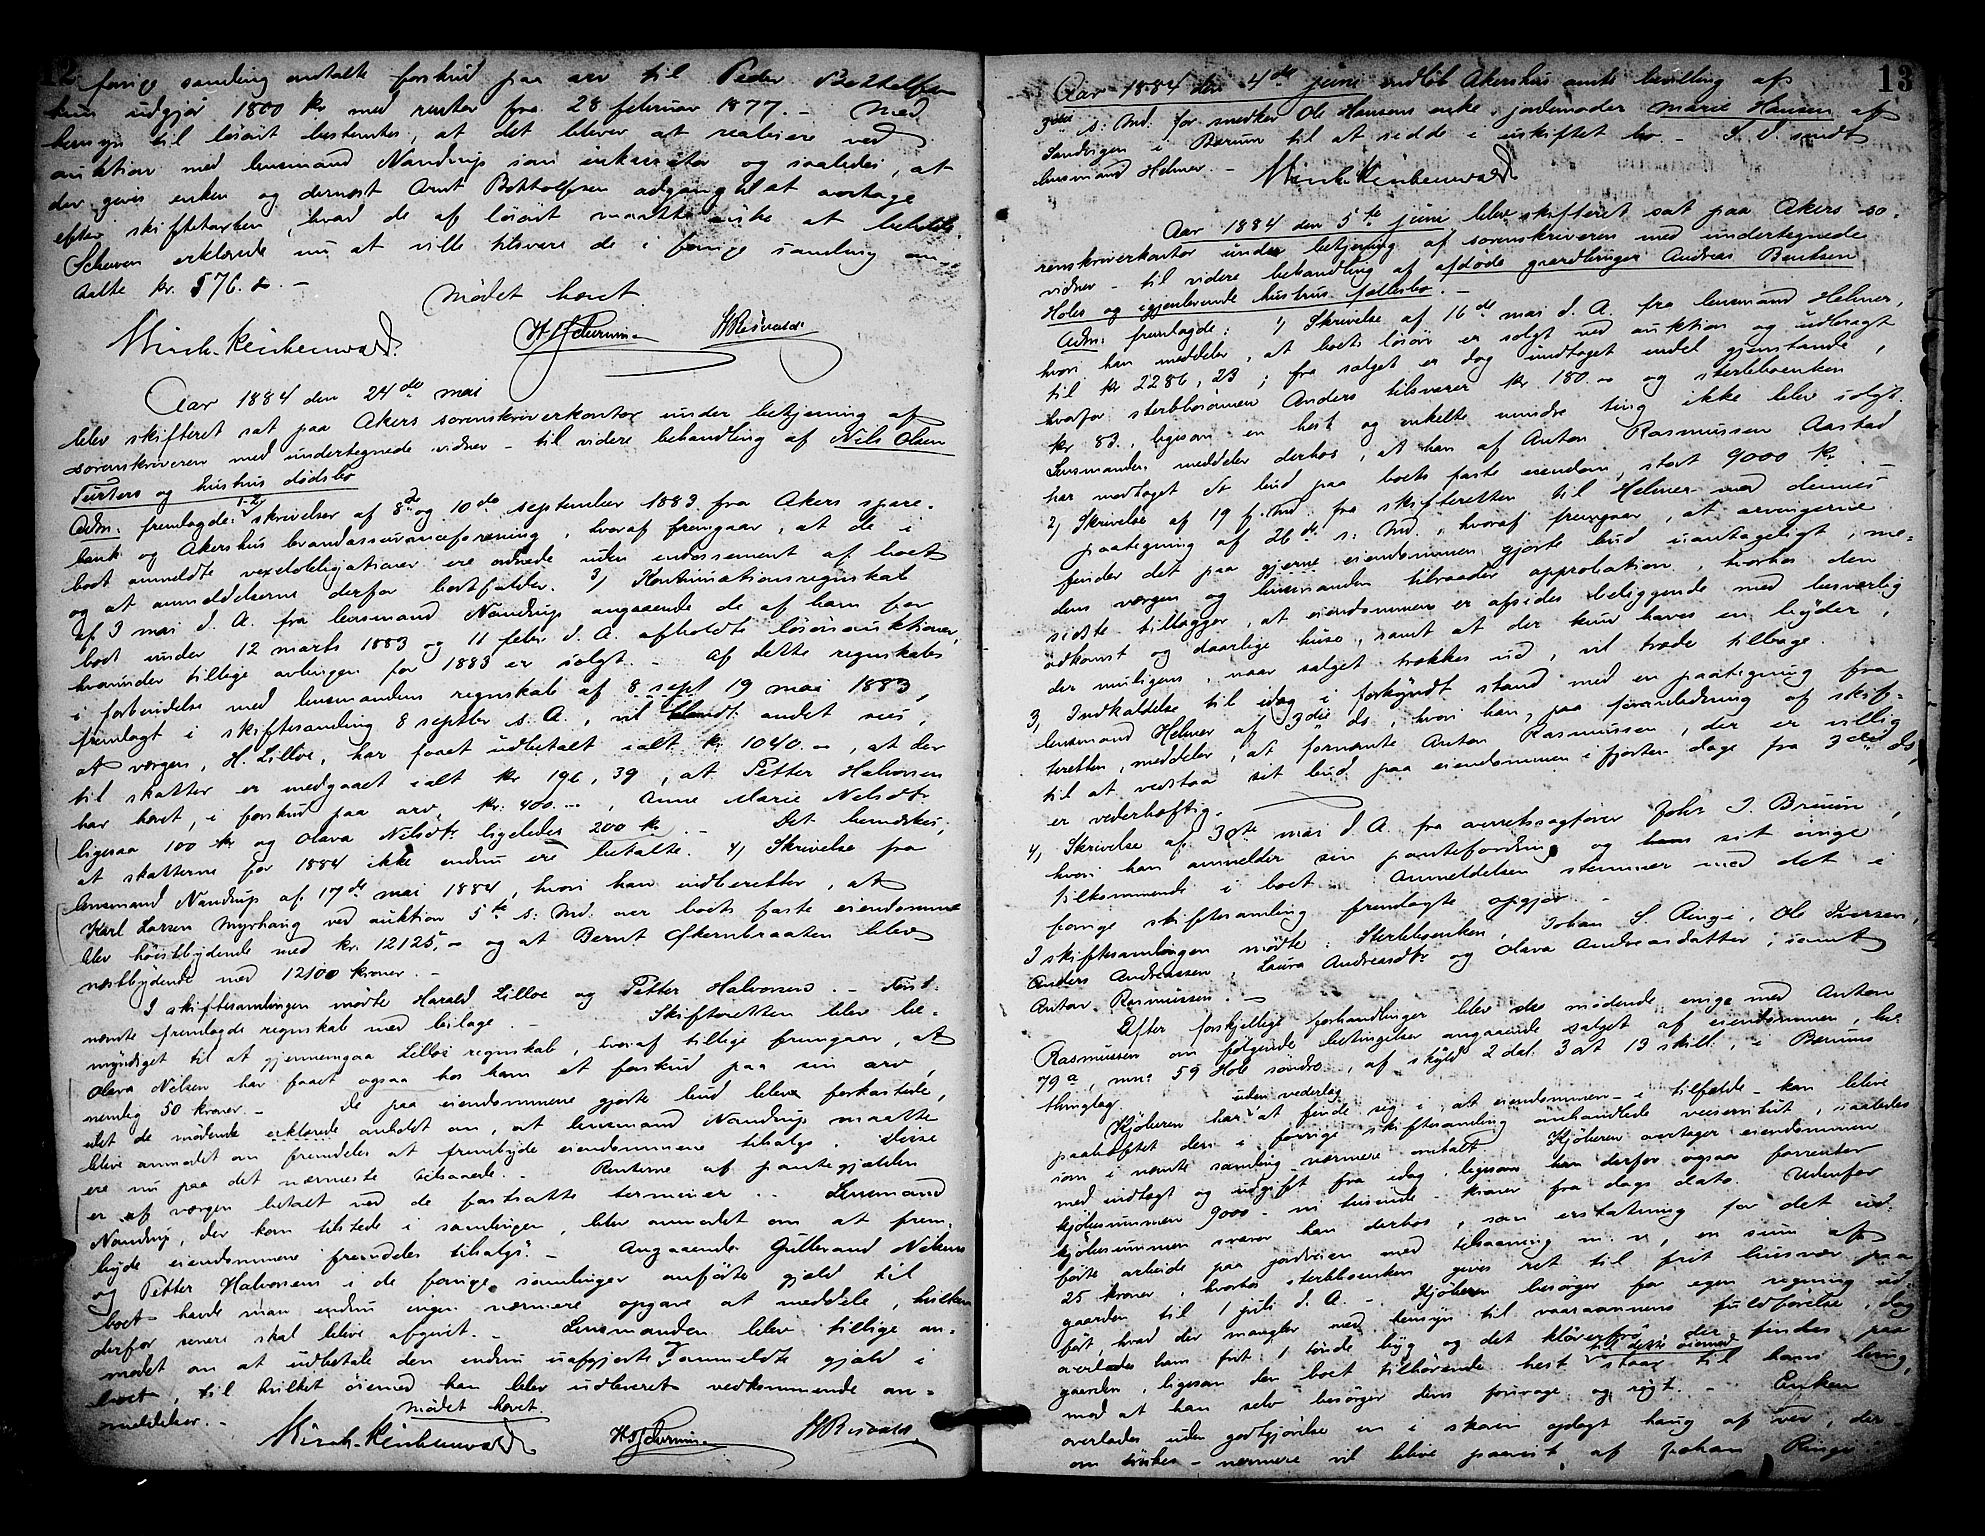 12
forrige samling omtalte forskud paa arv til Peder Bottolfsen
kun udgjør 1800 kr med renter fra 28 februar 1877. - Med
hensyn til løsøret bestemtes, at det bliver at realisere ved
auktion med lensmand Nandrup som inkassator og saaledes, at
der gives enken og dernæst Arnt Bottolfsen adgang til at overtage
efter skiftetaxten, hvad de af løsøret maatte ønske at beholde.
Scheven erklærede nu at ville tilsvare de i forrige samling om-
talte kr. 576. - -
Mødet hævet.
Aar 1884 den 24de mai
blev skifteret sat paa Akers sorenskriverkontor under betjening af
sorenskriveren med undertegnede vidner - til videre behandling af Nils Olsen
Turters og hustrus dødsbo
Adm. fremlagde: 1-2, skrivelser af 8de og 10de september 1883 fra Akers spare-
bank og Akershus brandassuranceforening, hvoraf fremgaar, at de i
boet anmeldte vexelobligationer ere ordnede uden endossement af boet
og at anmeldelserne derfor bortfalder. 3) Kontinuationsregnskab
af 3 mai d. A. fra lensmand Nandrup angaaende de af ham for
boet under 12 marts 1883 og 11 febr d. A. afholdte løsøreauktioner,
hvorunder tillige avlingen for 1883 er solgt. - Af dette regnskab
i forbindelse med lensmandens regnskab af 8 sept 19 mai 1883,
fremlagt i skiftesamling 8 septber s. A., vil blandt andet sees,
at værgen, H. Lilloe, har faaet udbetalt ialt kr 1040. -, at der
til skatter er medgaaet ialt kr 196,39, at Petter Halvorsen
har hævet, i forskud paa arv kr. 400. -, Anne Marie Nilsdtr
ligesaa 100 kr og Olava Nilsdtr ligeledes 200 kr. - Det bemærkes,
at skatterne for 1884 ikke endnu ere betalte. 4) Skrivelse fra
lensmand Nandrup af 17de mai 1884, hvori han indberetter, at
Karl Larsen Myrhaug ved auktion 5te s. Md. over boets faste eiendomme
blev høistbydende med kr. 12125, - og at Bernt Økernbraaten blev
næstbydende med 12100 kroner. -
I skiftesamlingen mødte Harald Lilloe og Petter Halvorsen. - Først-
nævnte fremlagde regnskab med bilage. - Skifteretten blev be-
myndiget til at gjennemgaa Lilloes regnskab, hvoraf tillige fremgaar, at
Olava Nilsen har faaet ogsaa hos ham et forskud paa sin arv,
nemlig 50 kroner. - De paa eiendommene gjorte bud bleve forkastede,
idet de mødende erklærede anholdt om, at lensmand Nandrup maatte
blive anmodet om fremdeles at frembyde eiendommene tilsalgs. Disse
ere nu paa det nærmeste tilsaaede. - Renterne af pantegjælden
er af værgen betalt ved de fastsatte terminer. - Lensmand
Nandrup, der kom tilstede i samlingen, blev anmodet om at frem-
byde eiendommene fremdeles tilsalgs. - Angaaende Gulbrand Nilsens
og Petter Halvorsens i de forrige samlinger anførte gjæld til
boet havde man endnu ingen nærmere opgave at meddele, hvilken
derfor senere skal blive afgivet. - Lensmanden blev tillige an-
modet om at udbetale den endnu uafgjorte anmeldte gjæld i
boet, til hvilket øiemed han blev udleveret vedkommende an-
meldelser. -
Mødet hævet.
13
Aar 1884 den 4de juni indløb Akershus amts bevilling af
3die s. Md. for snedker Ole Hansens enke, jordemoder Marie Hansen af
Sandvigen i Bærum til at sidde i uskiftet bo. - S. D. sendt
lensmand Helmer. -
Aar 1884 den 5te juni blev skifteret sat paa Akers so-
renskriverkontor under betjening af sorenskriveren med undertegnede
vidner - til videre behandling af afdøde gaardbruger Andreas Bentsen
Holes og igjenlevende hustrus fællesbo. -
Adm. fremlagde: 1) Skrivelse af 16de mai d. A. fra lensmand Helmer,
hvori han meddeler, at boets løsøre er solgt ved auktion og udbragt
til kr 2286,23; fra salget er dog undtaget endel gjenstande,
hvorfor sterbbosønnen Anders tilsvarer kr. 180. - og sterbboenken
kr 83, ligesom en hest og enkelte mindre ting ikke blev solgt.
Lensmanden meddeler derhos, at han af Anton Rasmussen Aastad
har modtaget et bud paa boets faste eiendom, stort 9000 kr. -
2) Skrivelse af 19 f. Md. fra skifteretten til Helmer med dennes
paategning af 26de s. Md., hvoraf fremgaar, at arvingerne
finder det paa eiendommen gjorte bud uantageligt, me-
dens værgen og lensmanden tilraader approbation, hvorhos den
sidste tillægger, at eiendommen er afsides beliggende med besværlig
adkomst og daarlige huse, samt at der kun haves en byder,
der muligens, naar salget trækkes ud, vil træde tilbage.
3, Indkaldelse til idag i forkyndt stand med en paategning fra
lensmand Helmer af 3die ds, hvori han, paa foranledning af skif-
teretten, meddeler, at fornævnte Anton Rasmussen, der er villig
til at vedstaa sit bud paa eiendommen i fjorten dage fra 3die ds,
er vederhæftig.
4, Skrivelse af 30te mai d. A. fra overretssagfører Johs J. Bruun,
hvori han anmelder sin pantefordring og hans sit øvrige
tilkommende i boet. Anmeldelsen stemmer med det i
forrige skiftesamling fremlagte opgjør. -
I skiftesamlingen mødte: Sterbboenken, Johan S. Ringi, Ole Iversen,
Anders Andreassen, Laura Andreasdtr og Olava Andreasdatter, samt
Anton Rasmussen. -
Efter forskjellige forhandlinger blev de mødende enige med Anton
Rasmussen om følgende betingelser angaaende salget af eiendommen,
79a, mno 59 Hole søndre, af skyld 2 dal. 3 ort 13 skill., i Bærums
thinglag.
Kjøberen har uden vederlag at finde sig i, at eiendommen - i tilfælde - kan blive
paaheftet den i forrige skiftesamling omhandlede veiservitut, saaledes
som i nævnte samling nærmere omtalt. Kjøberen overtager eiendommen
med indtægt og udgift fra idag, ligesom han derfor ogsaa forrenter
kjøbesummen 9000 - ni tusinde - kroner fra dags dato. Udenfor
kjøbesummen svarer han derhos, som erstatning for det ud-
førte arbeide paa jordveien med tilsaaning m. v., en sum af
25 kroner, hvorhos sterbboenken gives ret til frit husvær paa
gaarden til 1 juli d. A. - Kjøberen besørger for egen regning ud-
ført, hvad der mangler med hensyn til vaaraannens fuldførelse, dog
overlades ham frit 1 tønde byg og det kløverfrø, der findes paa
gaarden, ligesom den boet tilhørende hest til dette øiemed staar til hans brug,
mod at han selv besørger dens fourage og røgt. - Enken
overlades uden godtgjørelse en i skoven oplagt haug af ved, der -
om ønskes - nærmere vil blive paavist af Johan Ringi